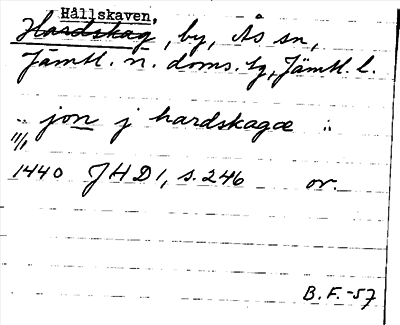 Hållskaven,
Hardskag, by, Ås sn,
Jämtl. n. doms. tg, Jämtl. l.
.. jon j hardskagæ ..
11/1
1440 JHD 1, s. 246 or.
B. F. -57